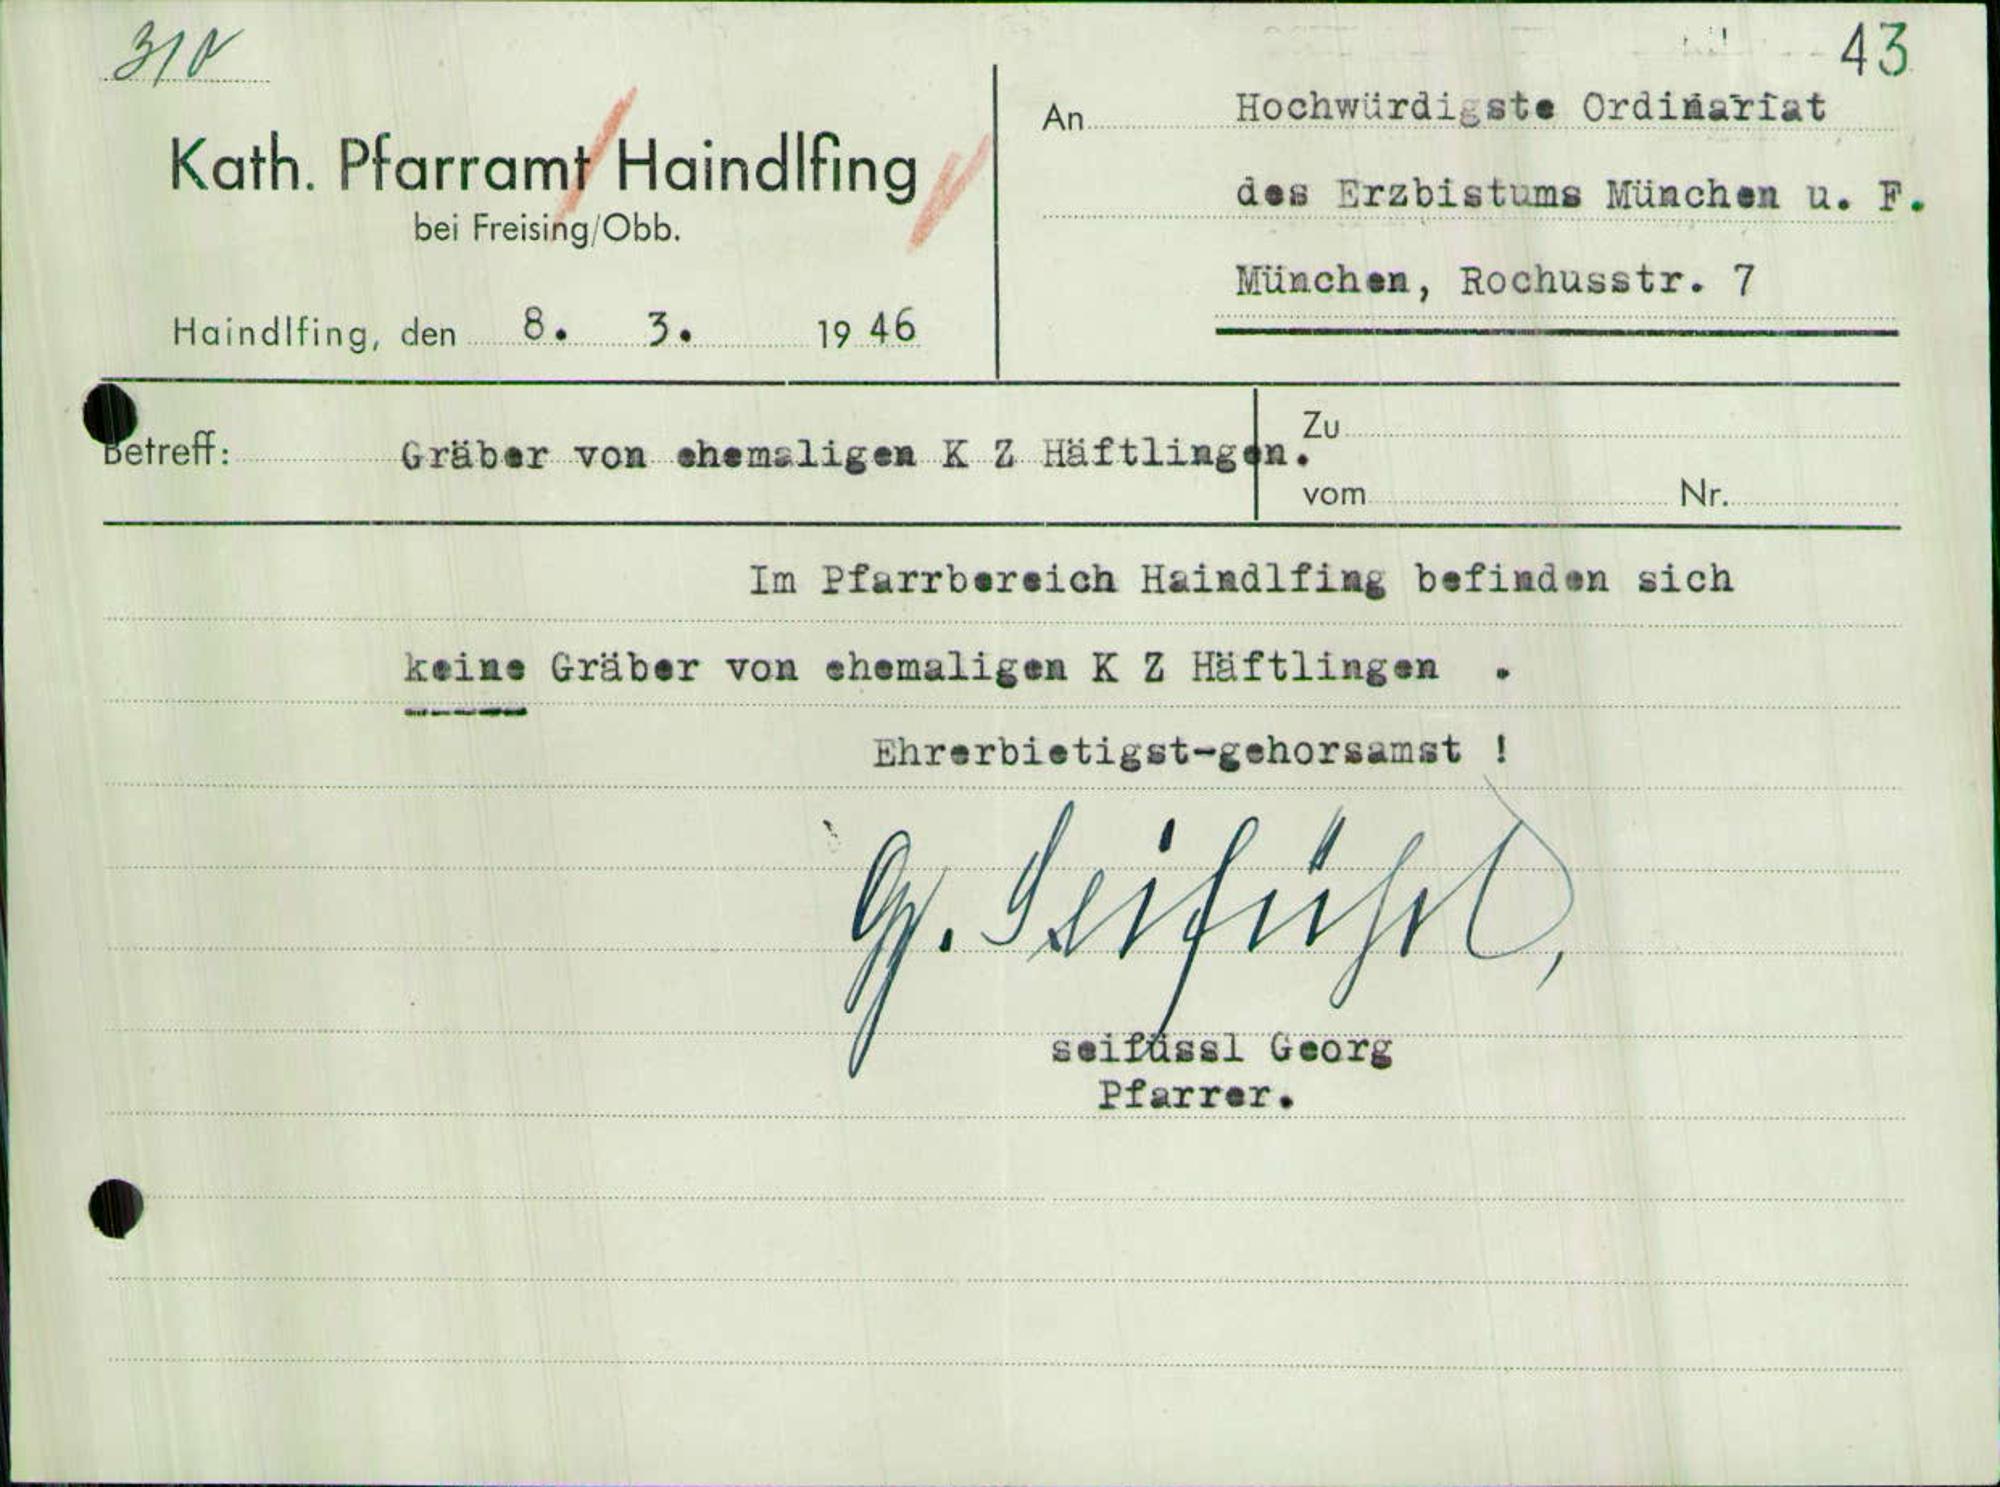 43
Kath. Pfarramt Haindlfing
bei Freising/Obb.
Haindlfing, den 8. 3. 1946
An Hochwürdigste Ordinariat
des Erzbistums München u. F.
München, Rochusstr. 7
Betreff: Gräber von ehemaligen K Z Häftlingen.
Zu
vom Nr.
Im Pfarrbereich Haindlfing befinden sich
keine Gräber von ehemaligen K Z Häftlingen .
Ehrerbietigst-gehorsamst !
G. Seifüßl,
seifüssl Georg
Pfarrer.